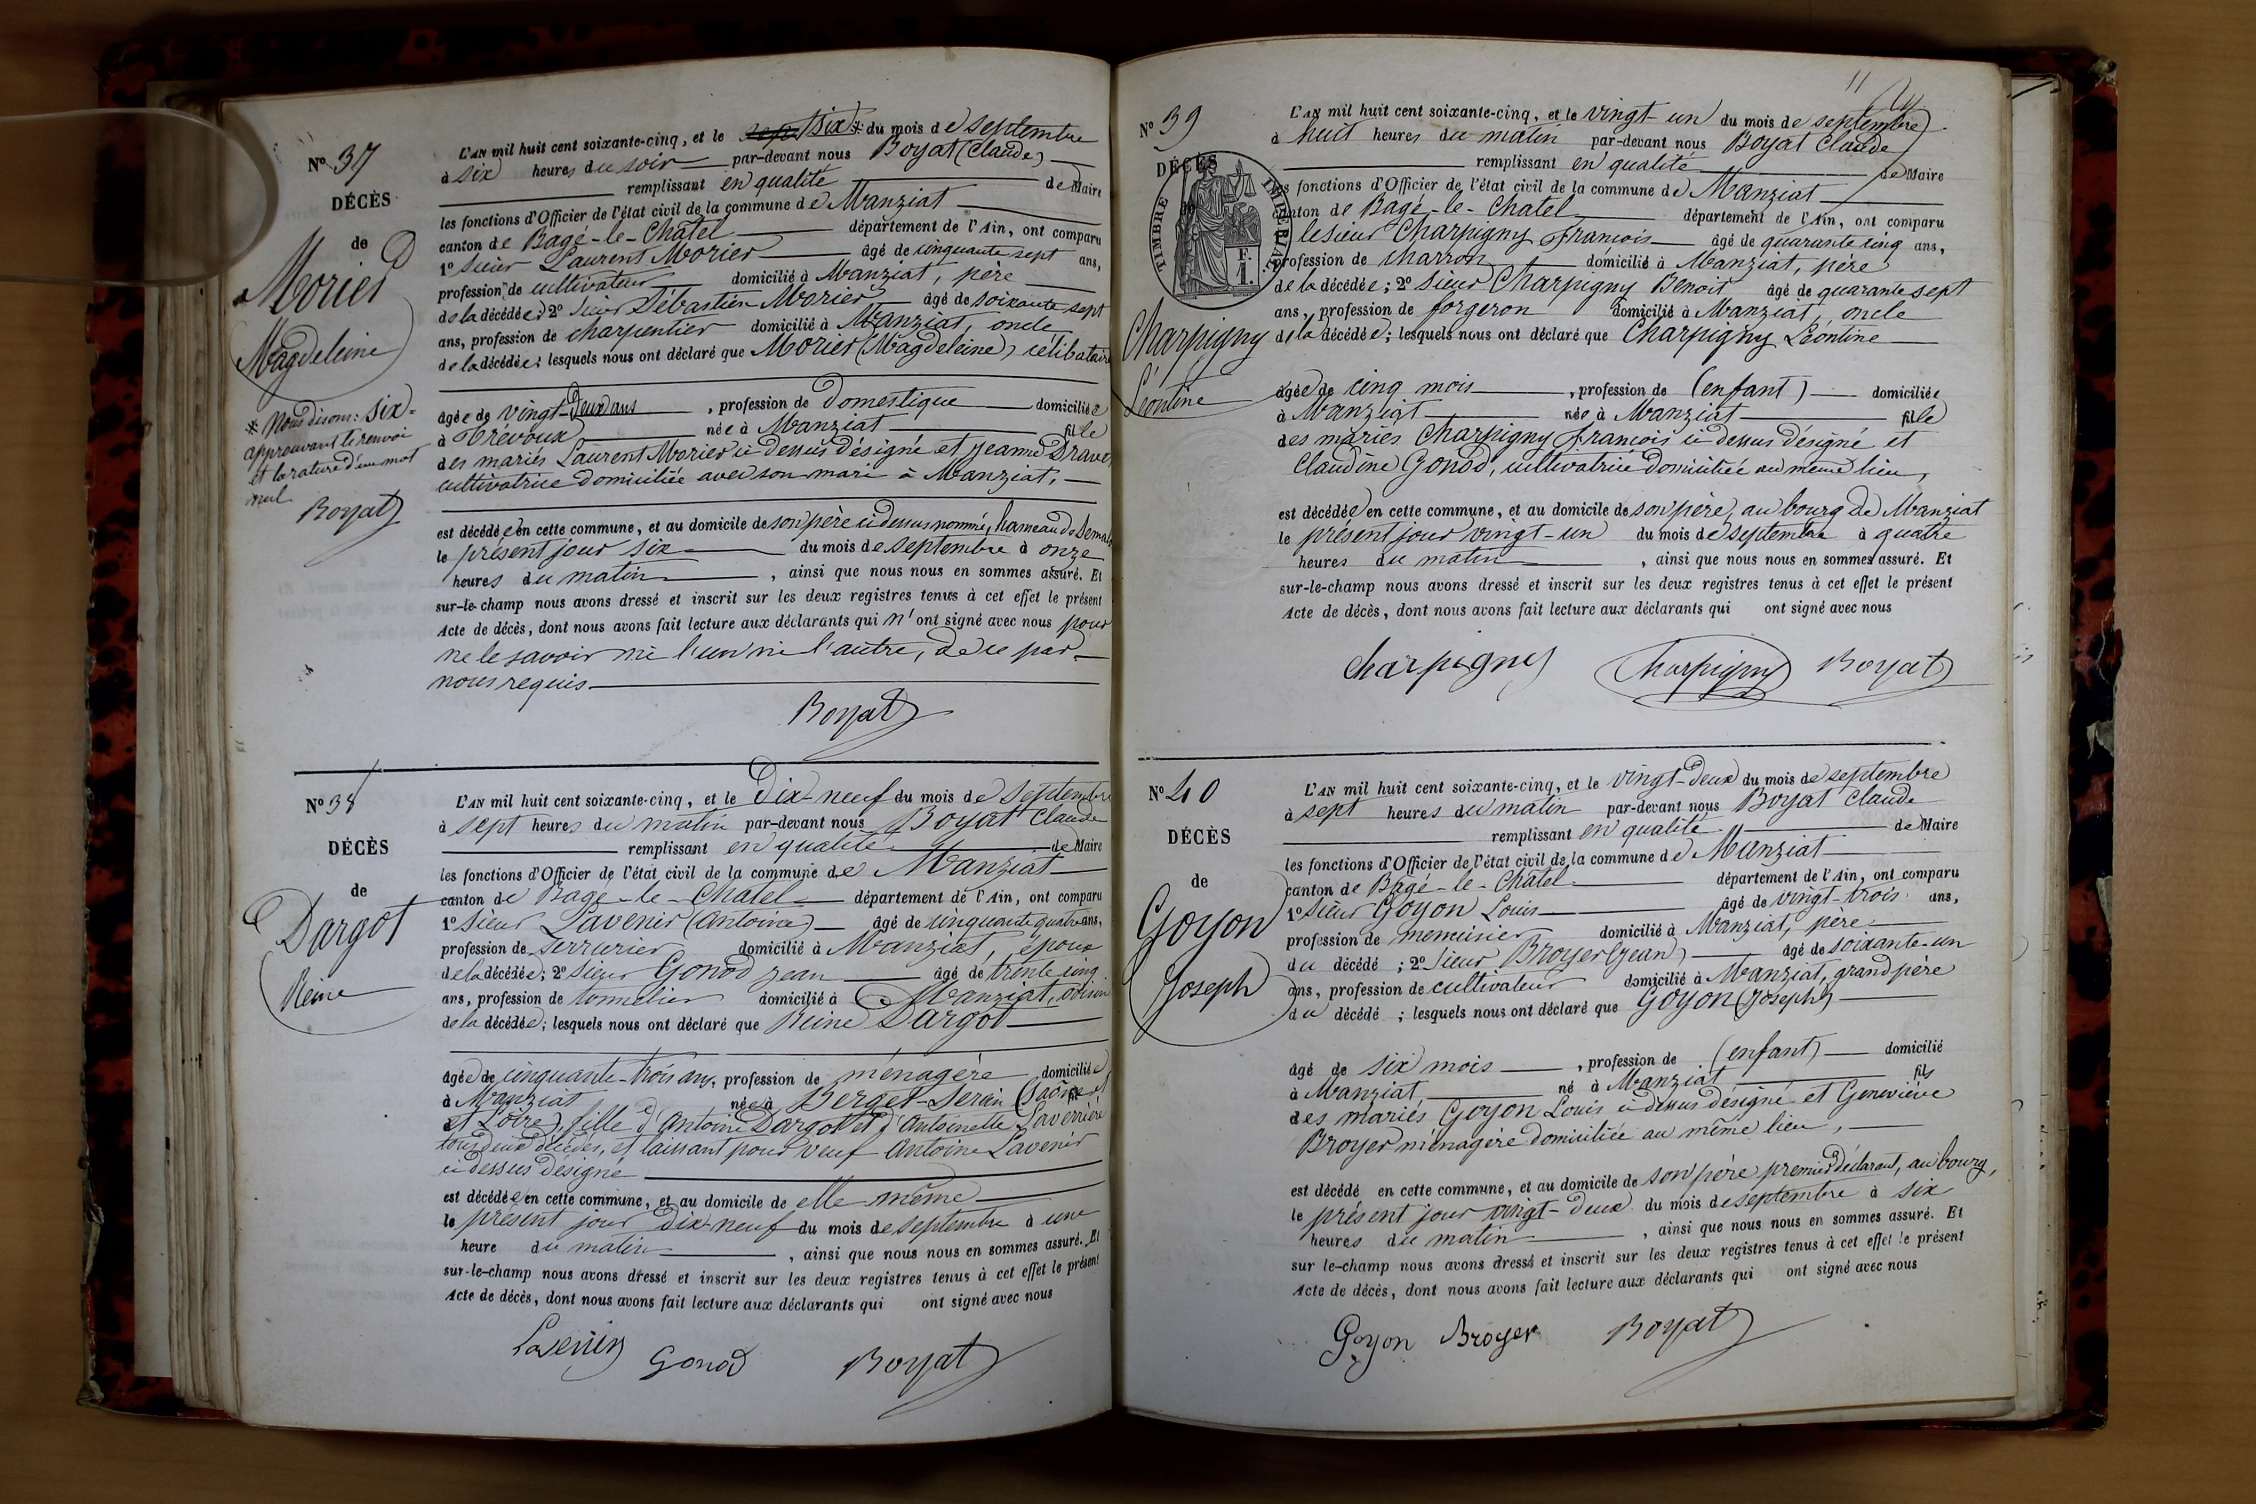 N° 37
DÉCÈS
de
Morier
Magdeleine
* Nous disons: six =
approuvant le renvoi
et la rature d'un mot
nul
Boyat
L'AN mil huit cent soixante-cinq, et le six * du mois de septembre
à six heures du soir par-devant nous Boyat (Claude)
remplissant en qualité de Maire
les fonctions d'Officier de l'état civil de la commune de Manziat
canton de Bagé-le-Châtel département de l'Ain, ont comparu
1° Sieur Laurent Morier âgé de cinquante sept ans,
profession de cultivateur domicilié à Manziat, père
de la décédée; 2° Sieur Sébastien Morier âgé de soixante sept
ans, profession de charpentier domicilié à Manziat, oncle
de la décédée; lesquels nous ont déclaré que Morier (Magdeleine) célibataire
âgée de vingt-deux ans, profession de domestique domiciliée
à Trévoux née à Manziat fille
des mariés Laurent Morier ci-dessus désigné et Jeanne Dravet
cultivatrice domiciliée avec son mari à Manziat,
est décédée en cette commune, et au domicile de son père ci dessus nommé, hameau de
le présent jour six du mois de septembre à onze
heures du matin, ainsi que nous nous en sommes assuré. Et
sur-le-champ nous avons dressé et inscrit sur les deux registres tenus à cet effet le présent
Acte de décès, dont nous avons fait lecture aux déclarants qui n'ont signé avec nous pour
ne le savoir ni l'un ni l'autre, de ce par
nous requis
Boyat
N° 38
DÉCÈS
de
Dargot
Reine
L'AN mil huit cent soixante-cinq, et le Dix-neuf du mois de Septembre
à sept heures du matin par-devant nous Boyat Claude
remplissant en qualité de Maire
les fonctions d'Officier de l'état civil de la commune de Manziat
canton de Bagé-le-Chatel département de l'Ain, ont comparu
1° Sieur Lavenir (Antoine) âgé de cinquante quatre ans,
profession de serrurier domicilié à Manziat, époux
de la décédée; 2° Sieur Gonod Jean âgé de trente cinq
ans, profession de tonnelier domicilié à Manziat, voisin
de la décédée; lesquels nous ont déclaré que Reine Dargot
âgée de cinquante-trois ans, profession de ménagère domiciliée
à Manziat née à Berget-Serein (Saône
et Loire), fille d'Antoine Dargot et d'Antoinette Laverrière
tous deux décédés, et laissant pour veuf Antoine Lavenir
ci dessus désigné
est décédée en cette commune, et au domicile de elle même
le présent jour dix-neuf du mois de septembre à une
heure du matin, ainsi que nous nous en sommes assuré. Et
sur-le-champ nous avons dressé et inscrit sur les deux registres tenus à cet effet le présent
Acte de décès, dont nous avons fait lecture aux déclarants qui ont signé avec nous
Lavenir Gonod Boyat
11
N° 39
DÉCÈS
TIMBRE IMPÉRIAL
Charpigny
Léontine
L'AN mil huit cent soixante-cinq, et le vingt-un du mois de septembre
à huit heures du matin par-devant nous Boyat Claude
remplissant en qualité de Maire
les fonctions d'Officier de l'état civil de la commune de Manziat
canton de Bagé-le-Chatel département de l'Ain, ont comparu
le sieur Charpigny François âgé de quarante cinq ans,
profession de charron domicilié à Manziat, père
de la décédée; 2° Sieur Charpigny Benoit âgé de quarante sept
ans, profession de forgeron domicilié à Manziat, oncle
de la décédée; lesquels nous ont déclaré que Charpigny Léontine
âgée de cinq mois, profession de (enfant) domiciliée
à Manziat née à Manziat fille
des mariés Charpigny François ci dessus désigné et
Claudine Gonod, cultivatrice domiciliée au même lieu,
est décédée en cette commune, et au domicile de son père, au bourg de Manziat
le présent jour vingt-un du mois de septembre à quatre
heures du matin, ainsi que nous nous en sommes assuré. Et
sur-le-champ nous avons dressé et inscrit sur les deux registres tenus à cet effet le présent
Acte de décès, dont nous avons fait lecture aux déclarants qui ont signé avec nous
Charpigny Charpigny Boyat
N° 40
DÉCÈS
de
Goyon
Joseph
L'AN mil huit cent soixante-cinq, et le vingt-deux du mois de septembre
à sept heures du matin par-devant nous Boyat Claude
remplissant en qualité de Maire
les fonctions d'Officier de l'état civil de la commune de Manziat
canton de Bagé-le-Châtel département de l'Ain, ont comparu
1° Sieur Goyon Louis âgé de vingt-trois ans,
profession de menuisier domicilié à Manziat, père
du décédé; 2° Sieur Broyer (Jean) âgé de soixante-un
ans, profession de cultivateur domicilié à Manziat, grand père
du décédé; lesquels nous ont déclaré que Goyon (Joseph)
âgé de six mois, profession de (enfant) domicilié
à Manziat né à Manziat fils
des mariés Goyon Louis ci dessus désigné et Geneviève
Broyer ménagère domiciliée au même lieu,
est décédé en cette commune, et au domicile de son père premier déclarant, au bourg,
le présent jour vingt-deux du mois de septembre à six
heures du matin, ainsi que nous nous en sommes assuré. Et
sur le-champ nous avons dressé et inscrit sur les deux registres tenus à cet effet le présent
Acte de décès, dont nous avons fait lecture aux déclarants qui ont signé avec nous
Goyon Broyer Boyat